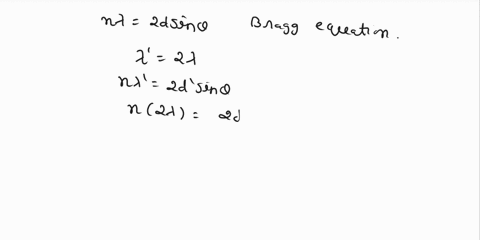 nλ = 2dsinθ Bragg equation.
λ' = 2λ
nλ' = 2d'sinθ
n(2λ) = 2d